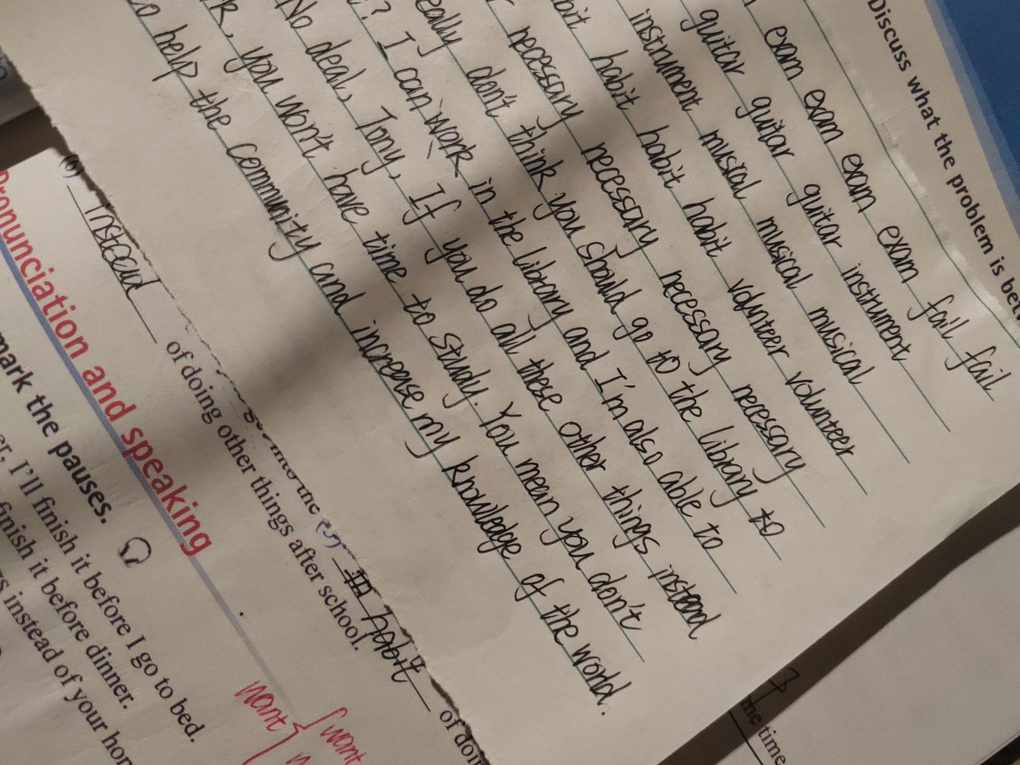 Discuss what the problem is
exam exam exam exam fail fail
guitar guitar guitar instrument
instrument musical musical musical
habit habit habit volunteer volunteer
necessary necessary necessary necessary
don't think you should go to the library to
? I can work in the library and I'm also able to
No deal, Tony, If you do all these other things instead
you won't have time to study. You mean you don't
to help the community and increase my knowledge of the world.
instead of doing other things after school.
Pronunciation and speaking
mark the pauses.
I'll finish it before I go to bed.
finish it before dinner.
instead of your
want
want
time